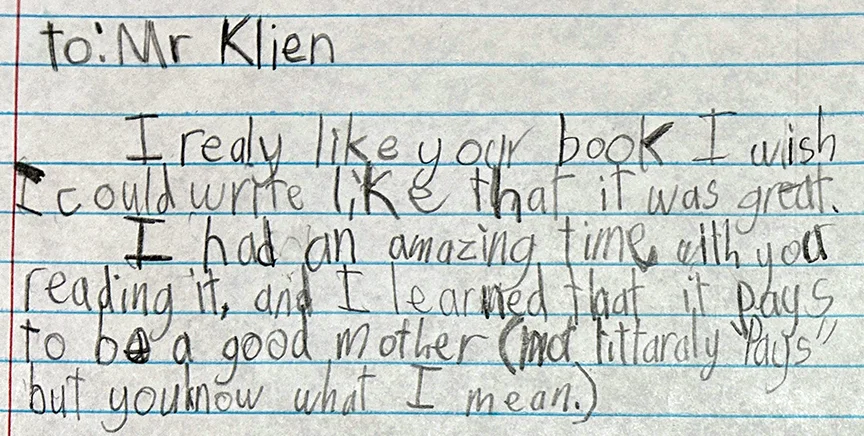 to: Mr Klien
I realy like your book I wish
I could write like that it was great.
I had an amazing time with you
reading it, and I learned that it pays
to be a good mother (not littaraly "Pays"
but you know what I mean.)